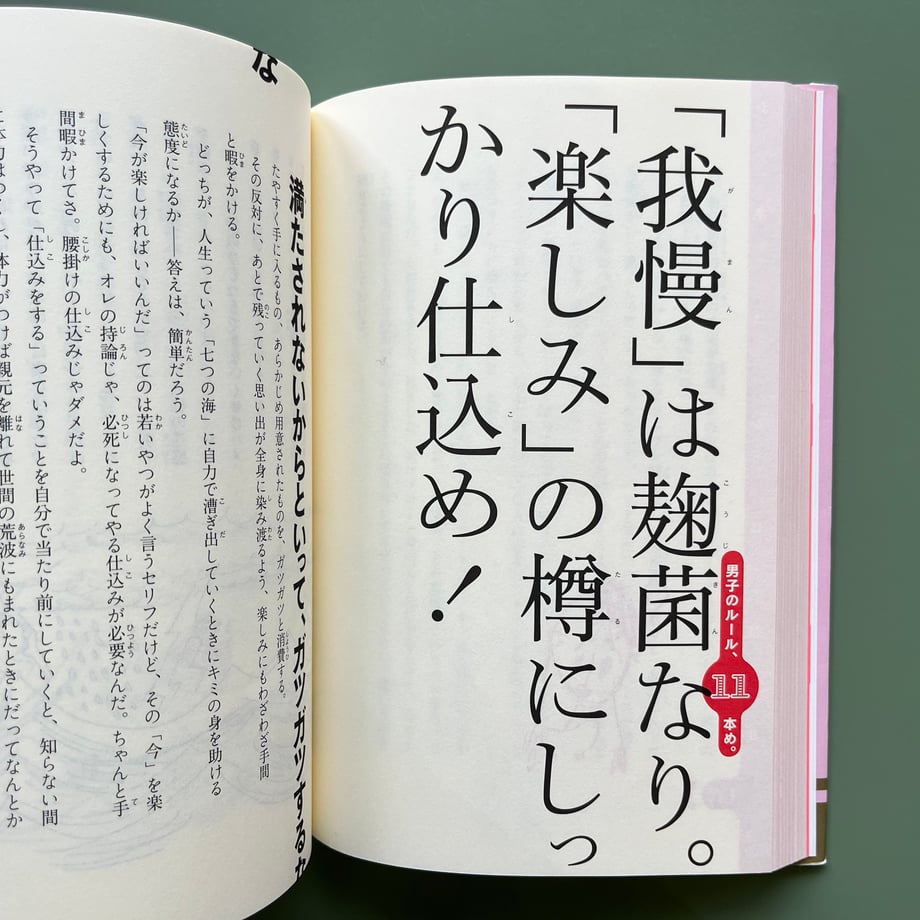 男子のルール、11本め。
「我慢」は麹菌なり。
「楽しみ」の樽にしっ
かり仕込め！
な
満たされないからといって、ガツガツするな
たやすく手に入るもの、あらかじめ用意されたものを、ガツガツと消費する。
その反対に、あとで残っていく思い出が全身に染み渡るよう、楽しみにもわざわざ手間
と暇をかける。
どっちが、人生っていう「七つの海」に自力で漕ぎ出していくときにキミの身を助ける
態度になるか――答えは、簡単だろう。
「今が楽しければいいんだ」ってのは若いやつがよく言うセリフだけど、その「今」を楽
しくするためにも、オレの持論じゃ、必死になってやる仕込みが必要なんだ。ちゃんと手
間暇かけてさ。腰掛けの仕込みじゃダメだよ。
そうやって「仕込みをする」っていうことを自分で当たり前にしていくと、知らない間
体力がつけば親元を離れて世間の荒波にもまれたときにだってなんとか